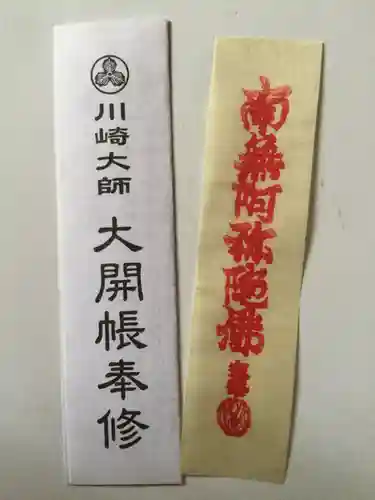 川崎大師 大開帳奉修
南無阿弥陀佛